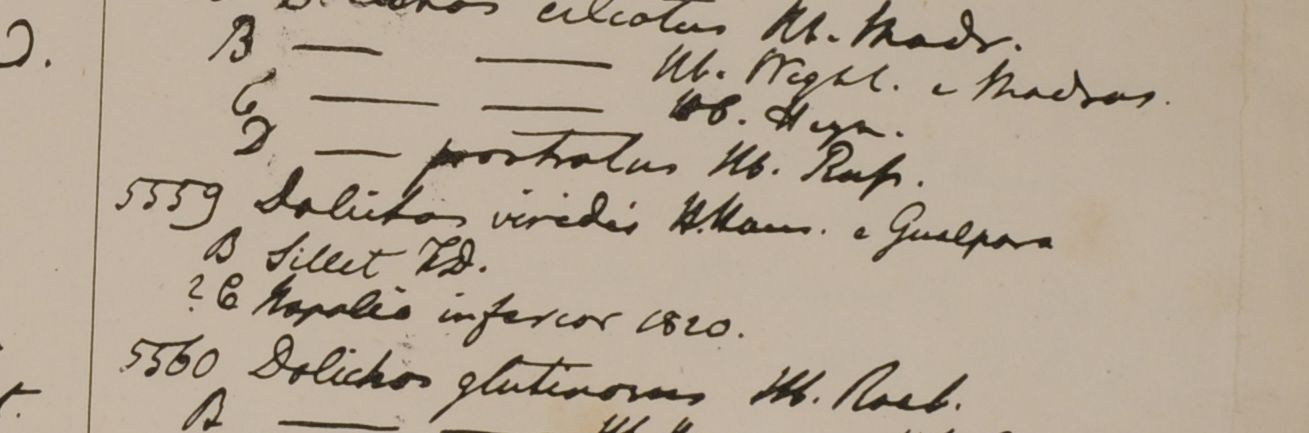 Dolichos ciliatus Hb. Madr.
B — — Hb. Wight. e Madras.
C — — Hb. Heyn.
D — prostratus Hb. Russ.
5559 Dolichos viridis H. Ham. e Gualpara
B Sillet F.D.
? C Napalia inferior 1820.
5560 Dolichos glutinosus Hb. Roxb.
B — — Hb.